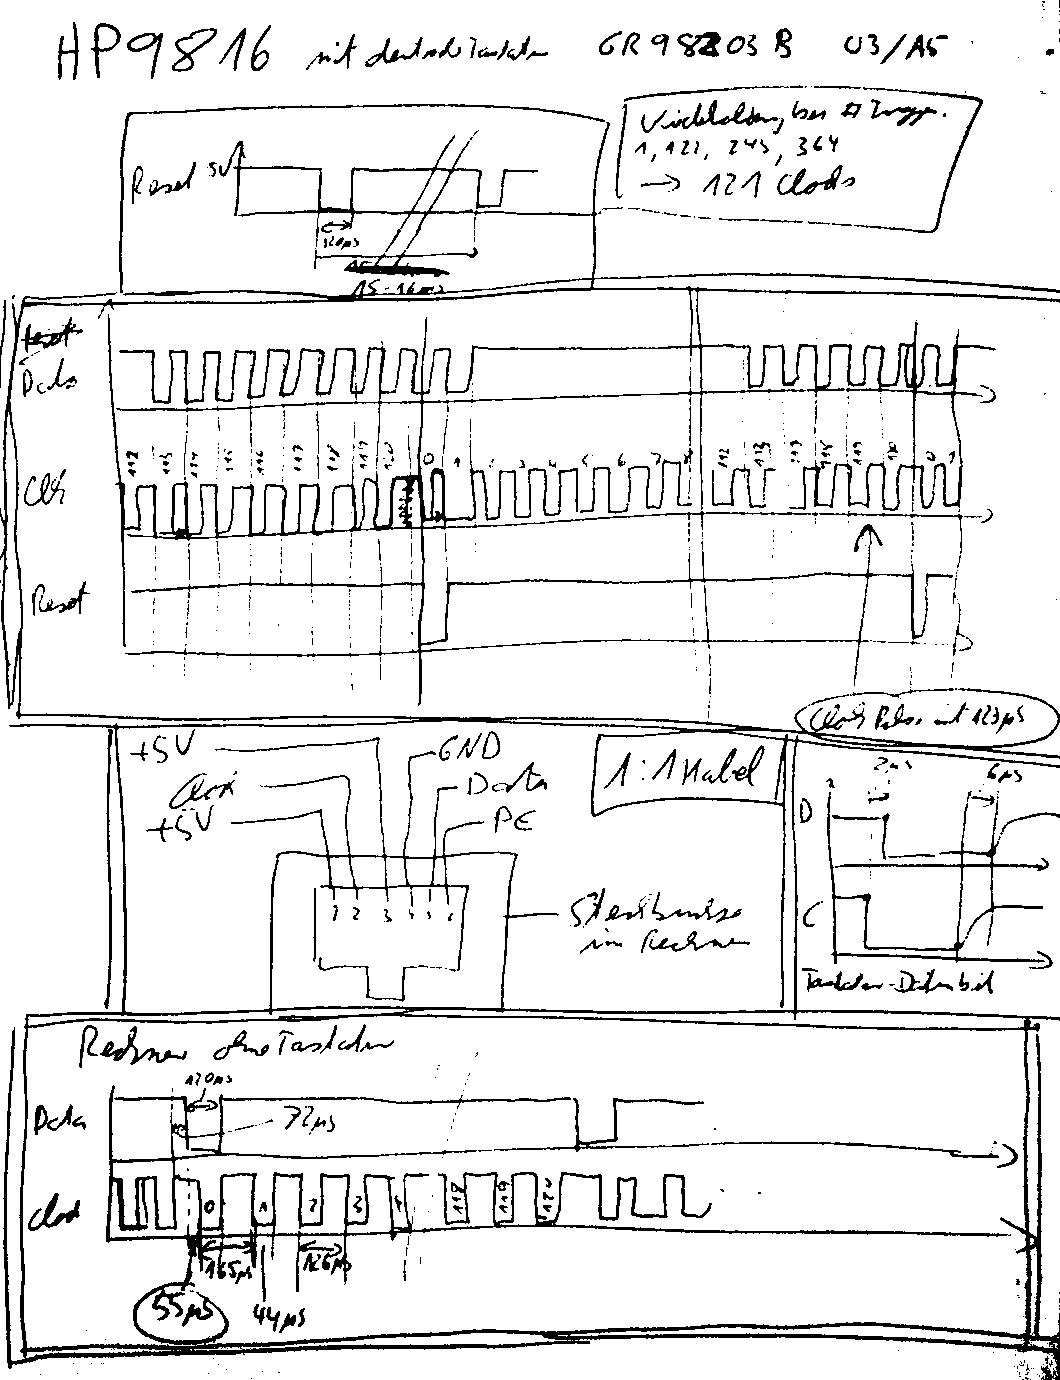 HP9816 mit deutscher Tastatur GR98203B U3/A5
bei
1, 122, 243, 364
→ 121 Clocks
Reset 5V
120µs
15-16ms
Data
112 113 114 115 116 117 118 119 120 0 1 2 3 4 5 6 7 8 112 113 118 119 120 0 1
Clk
Reset
Clock Pulse mit 123µs
+5V GND
Data
+5V PE
1:1 Kabel
1 2 3 4 5 6
Steckbuchse
im Rechner
2µs 6µs
D
C
Tastatur-Datenbit
Rechner ohne Tastatur
120µs
Data 72µs
Clock 0 1 2 3 4 118 119 120
165µs 126µs
55µs 44µs